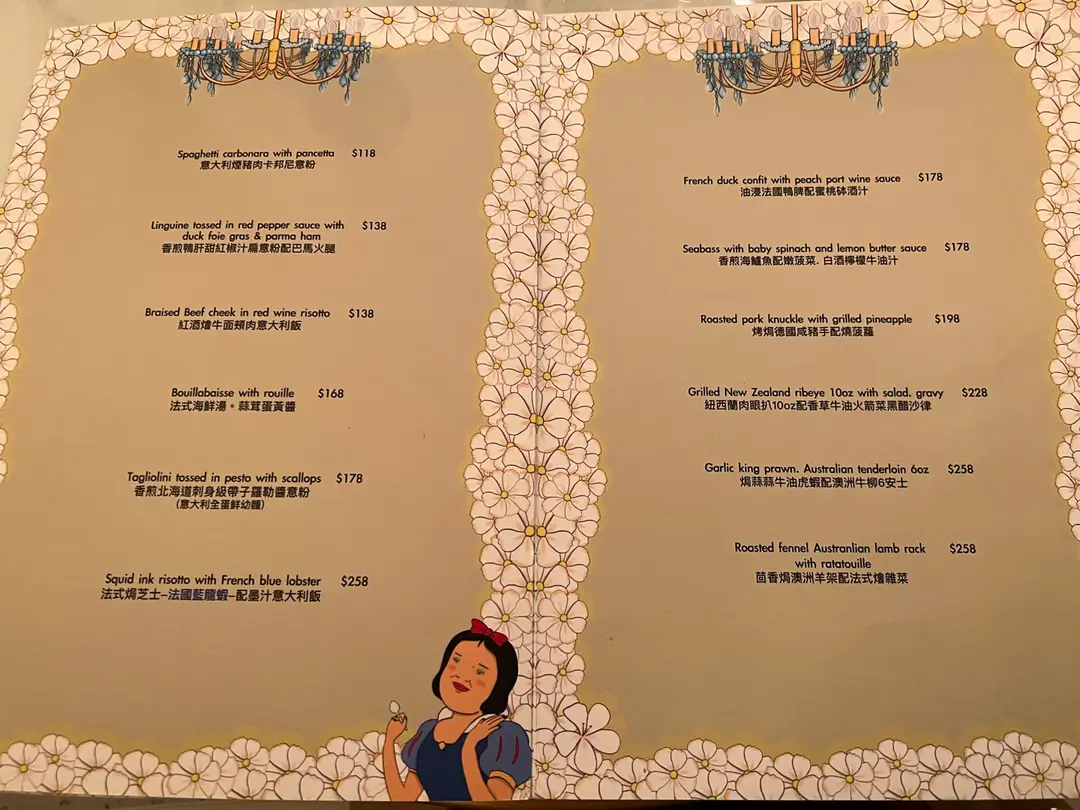 Spaghetti carbonara with pancetta $118
意大利煙豬肉卡邦尼意粉
Linguine tossed in red pepper sauce with $138
duck foie gras & parma ham
香煎鴨肝甜紅椒汁扁意粉配巴馬火腿
Braised Beef cheek in red wine risotto $138
紅酒燴牛面頰肉意大利飯
Bouillabaisse with rouille $168
法式海鮮湯。蒜茸蛋黃醬
Tagliolini tossed in pesto with scallops $178
香煎北海道刺身級帶子羅勒醬意粉
(意大利全蛋鮮幼麵)
Squid ink risotto with French blue lobster $258
法式焗芝士-法國藍龍蝦-配墨汁意大利飯
French duck confit with peach port wine sauce $178
油浸法國鴨髀配蜜桃砵酒汁
Seabass with baby spinach and lemon butter sauce $178
香煎海鱸魚配嫩菠菜. 白酒檸檬牛油汁
Roasted pork knuckle with grilled pineapple $198
烤焗德國咸豬手配燒菠蘿
Grilled New Zealand ribeye 10oz with salad. gravy $228
紐西蘭肉眼扒10oz配香草牛油火箭菜黑醋沙律
Garlic king prawn. Australian tenderloin 6oz $258
焗蒜蒜牛油虎蝦配澳洲牛柳6安士
Roasted fennel Austranlian lamb rack $258
with ratatouille
茴香焗澳洲羊架配法式燴雜菜